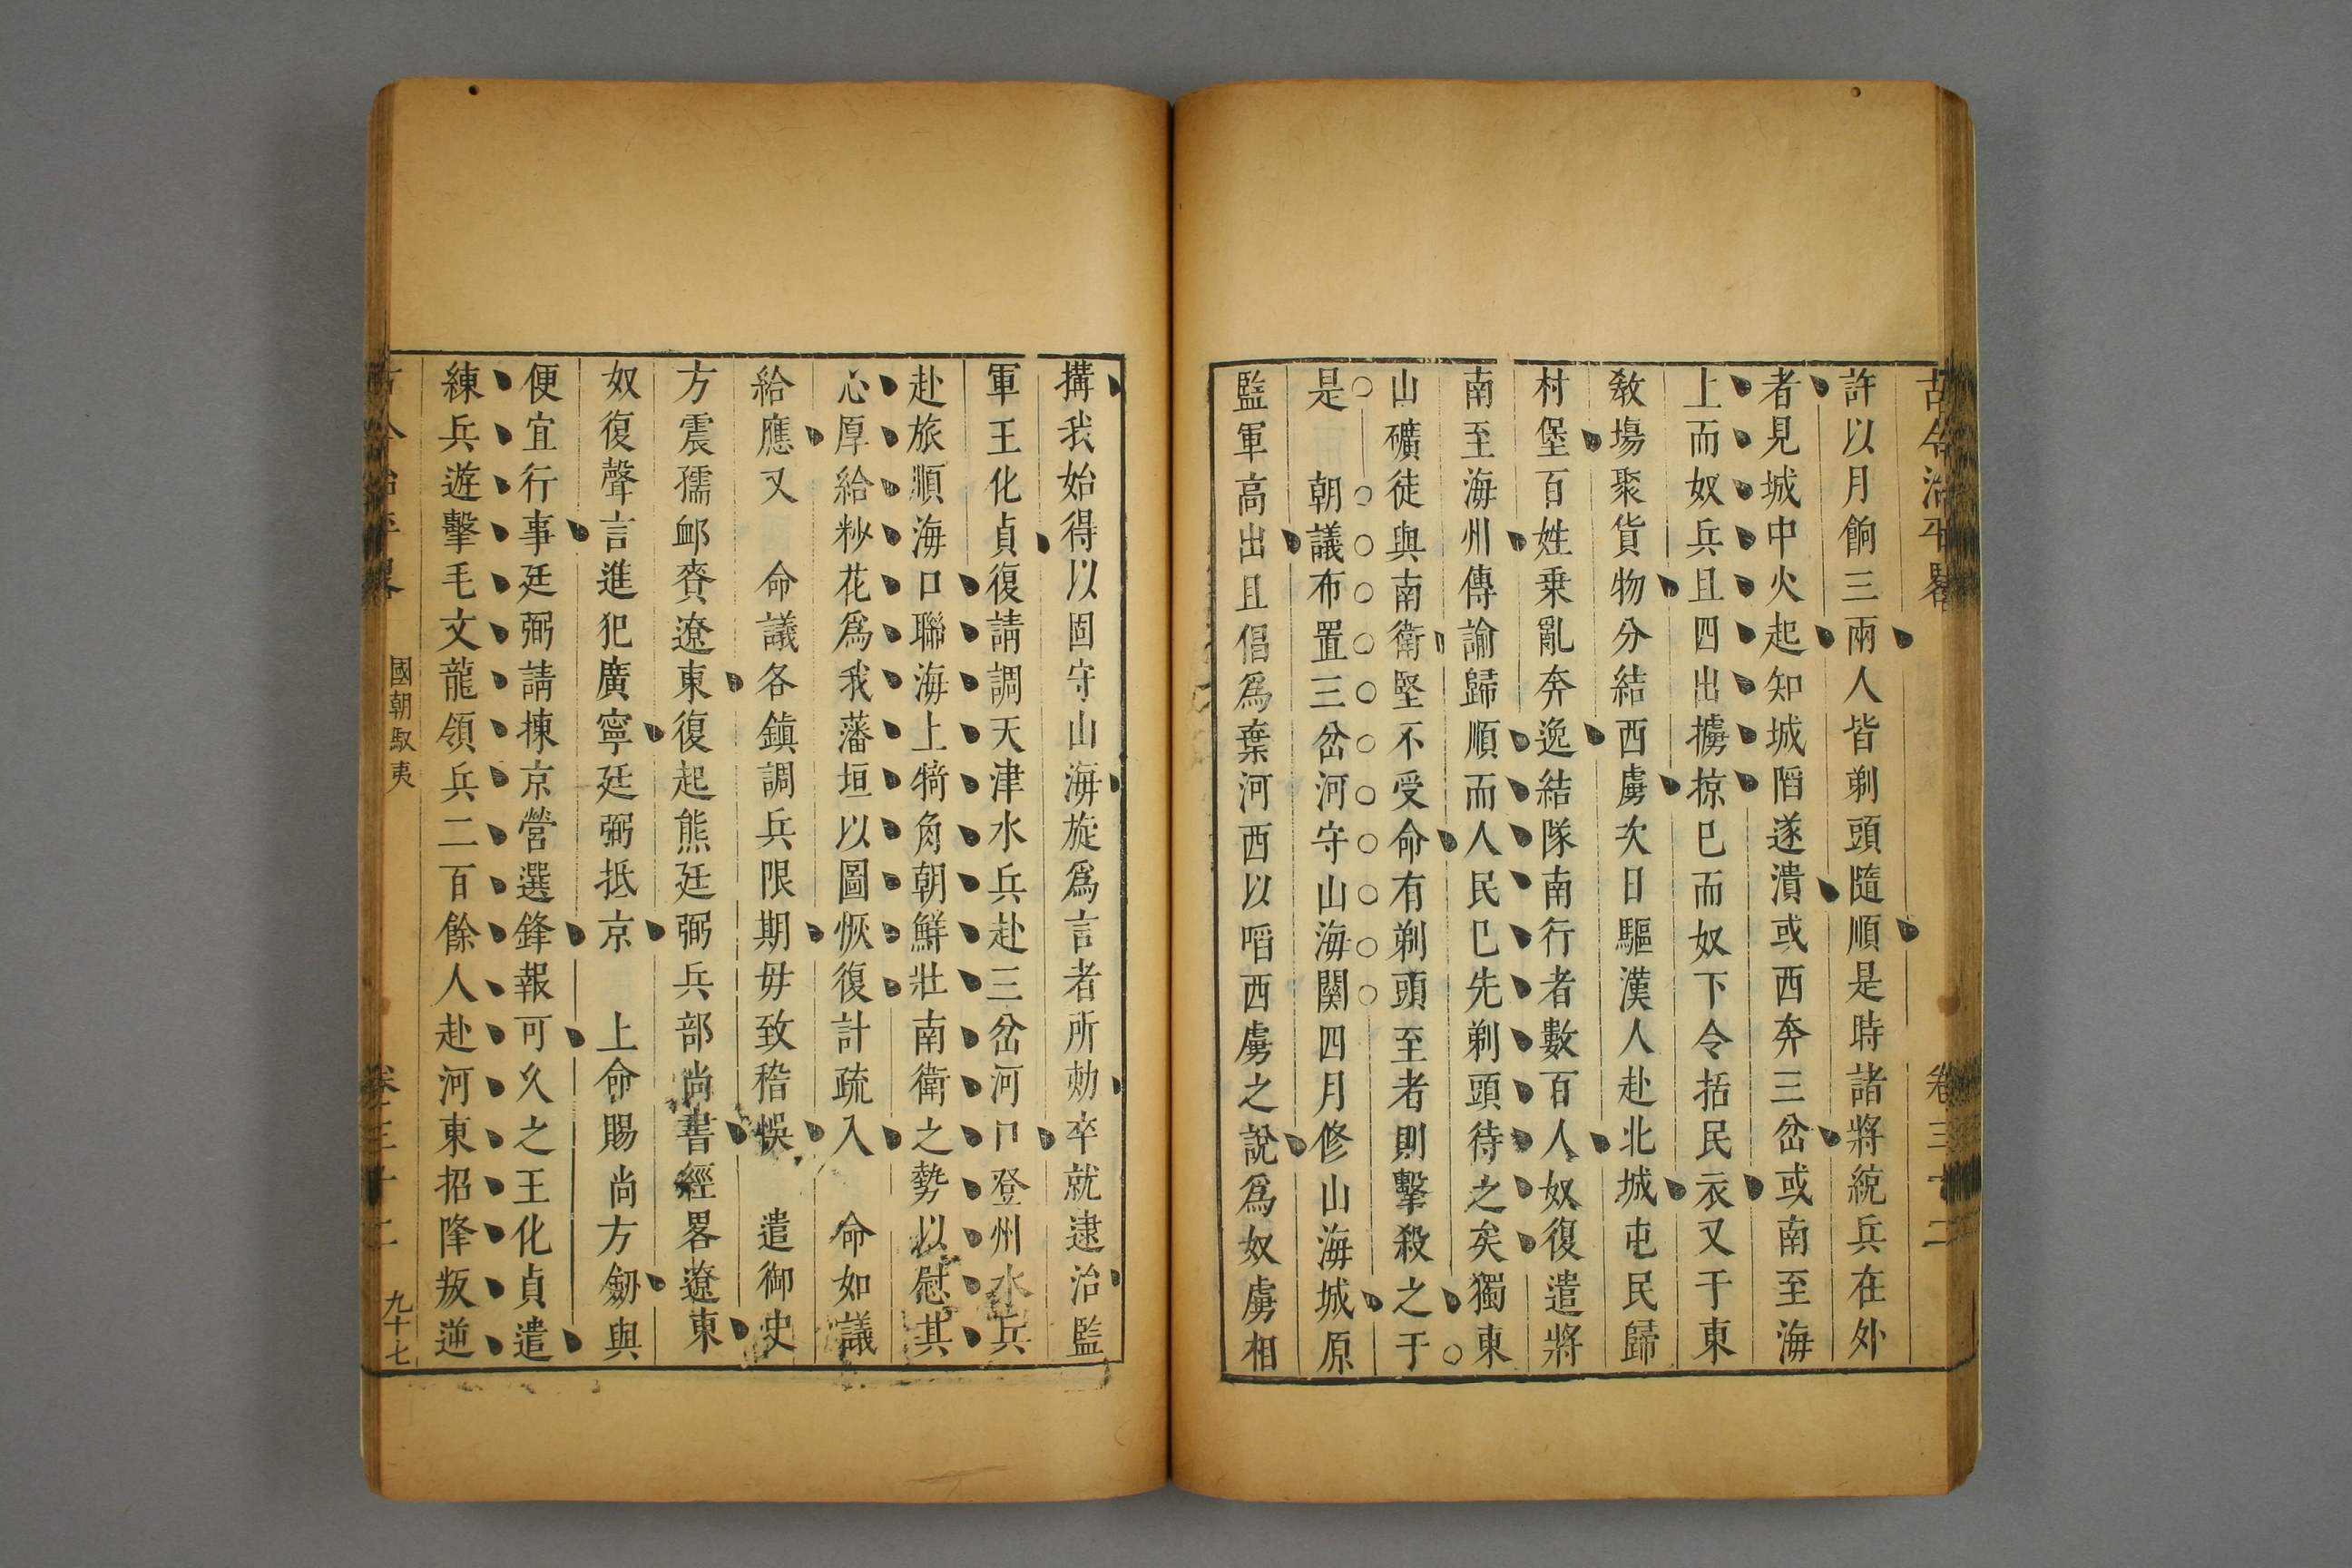 古今治平畧 卷三十二
許以月餉三兩人皆剃頭隨順是時諸將統兵在外
者見城中火起知城陷遂潰或西奔三岔或南至海
上而奴兵且四出擄掠已而奴下令括民衣又于東
敎場聚貨物分結西虜次日驅漢人赴北城屯民歸
村堡百姓乗亂奔逸結隊南行者數百人奴復遣將
南至海州傳諭歸順而人民已先剃頭待之矣獨東
山礦徒與南衛堅不受命有剃頭至者則擊殺之于
是 朝議布置三岔河守山海關四月修山海城原
監軍高出且倡爲棄河西以啗西虜之說爲奴虜相
搆我始得以固守山海旋爲言者所劾卒就逮治監
軍王化貞復請調天津水兵赴三岔河口登州水兵
赴旅順海口聯海上犄角朝鮮壯南衛之勢以慰其
心厚給籾花爲我藩垣以圖恢復計疏入 命如議
給應又 命議各鎮調兵限期毋致稽悞 遣御史
方震孺邮賚遼東復起熊廷弼兵部尚書經畧遼東
奴復聲言進犯廣寧廷弼抵京 上命賜尚方劒與
便宜行事廷弼請揀京營選鋒報可久之王化貞遣
練兵遊擊毛文龍領兵二百餘人赴河東招降叛逆
古今治平畧 國朝馭夷 卷三十二 九十七